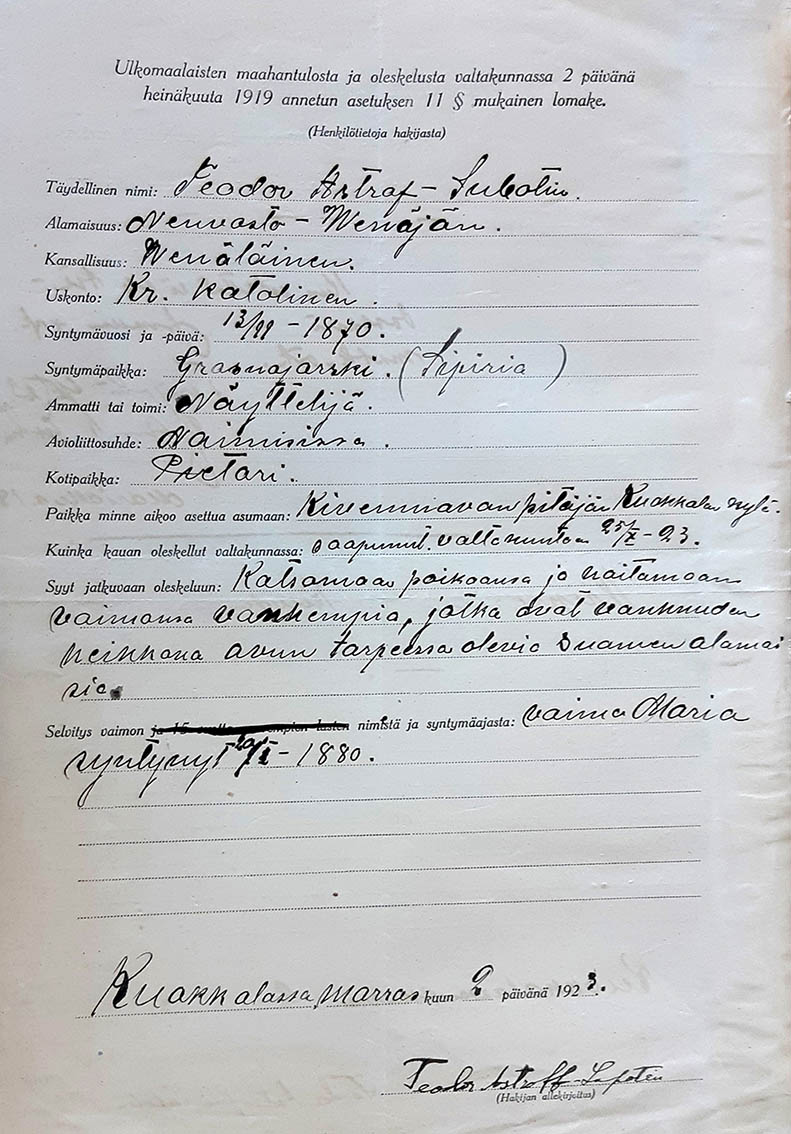 Ulkomaalaisten maahantulosta ja oleskelusta valtakunnassa 2 päivänä
heinäkuuta 1919 annetun asetuksen 11 § mukainen lomake.
(Henkilötietoja hakijasta)
Täydellinen nimi: Teodor Astraf-Subotin.
Alamaisuus: Neuvosto-Wenäjän.
Kansallisuus: Wenäläinen.
Uskonto: Kr. katolinen.
Syntymävuosi ja -päivä: -1870.
Syntymäpaikka: Grasnajarski. (Sipiria)
Ammatti tai toimi: Näyttelijä.
Avioliittosuhde: Naimisissa.
Kotipaikka: Pietari.
Paikka minne aikoo asettua asumaan: Kivennavan pitäjän Kuokkalan kylä.
Kuinka kauan oleskellut valtakunnassa: saapunut valtakuntaan 25/X-23.
Syyt jatkuvaan oleskeluun: Katsomaan poikaansa ja hoitamaan
vaimonsa vanhempia, jotka ovat vanhuuden
heikkona avun tarpeessa olevia Suomen alamai
sia.
Selvitys vaimon nimistä ja syntymäajasta: vaimo Maria
syntynyt -1880.
Kuokkalassa, marras kuun 2 päivänä 1923.
Teodor Astroff-Supoten
(Hakijan allekirjoitus)